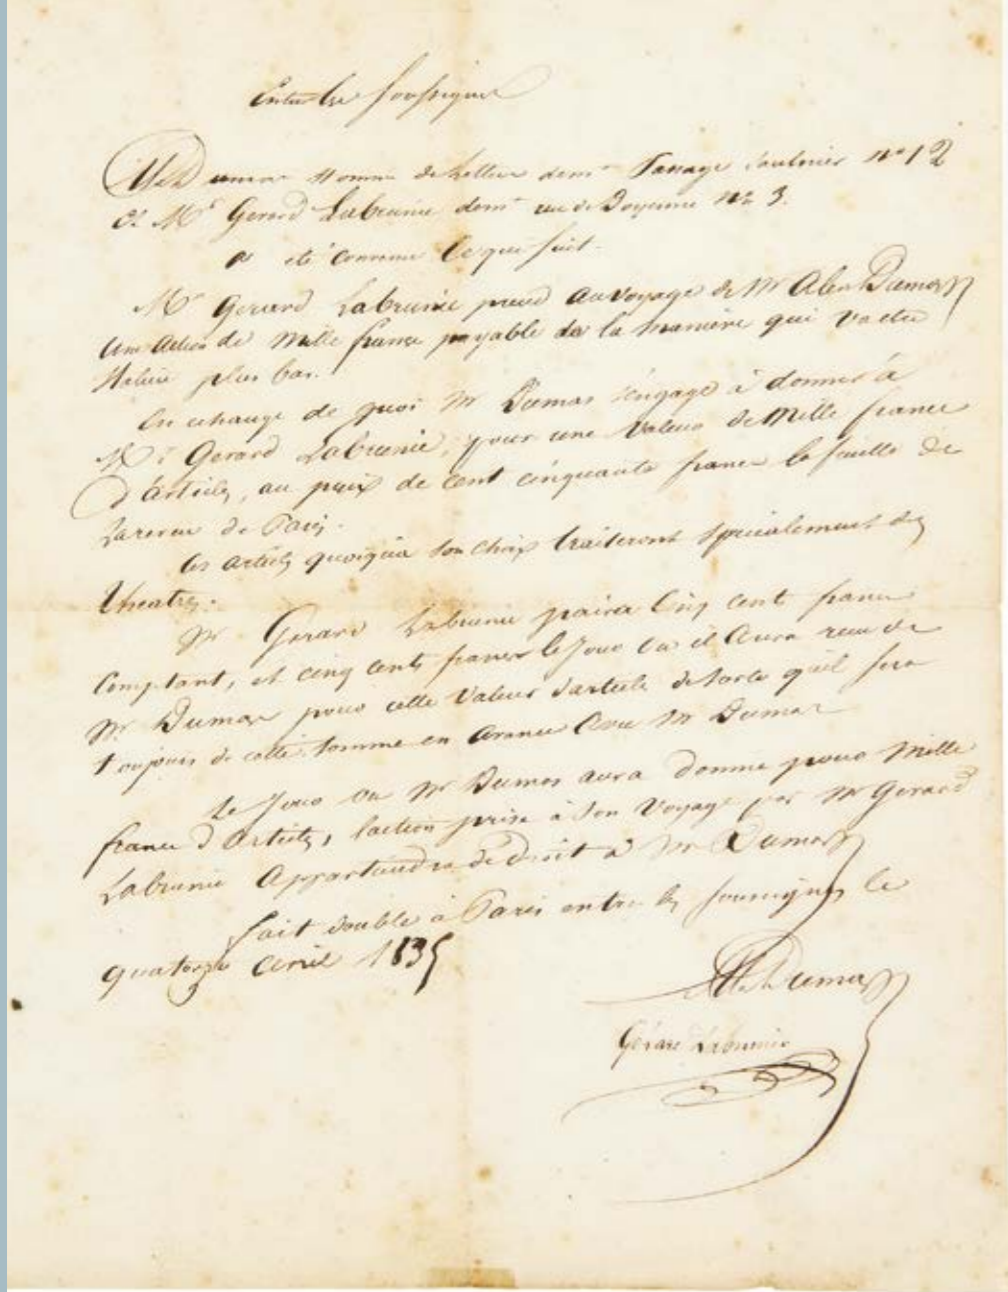 Entre les soussignés
Alex Dumas homme de Lettres demt Passage Saulnier no 12
Et Mr Gerard Labrunie demt rue du Doyenné no 3.
a été convenu ce que suit.
Mr Gerard Labrunie prend au voyage de Mr Alex Dumas
une action de Mille francs payable de la manière qui va etre
plus bas.
En echange de quoi Mr Dumas s'engage à donner à
Mr Gerard Labrunie, pour une valeur de Mille francs
d'articles, au prix de cent cinquante francs la feuille de
La revue de Paris.
Ces articles quoiqu'à son choix traiteront spécialement des
theatres.
Mr Gerard Labrunie paiera Cinq cent francs
comptant, et cinq cents francs le Jour ou il aura recu de
Mr Dumas pour cette valeur d'article de sorte qu'il sera
toujours de cette somme en avance avec Mr Dumas
Le Jour ou Mr Dumas aura donné pour Mille
francs d'articles, l'action prise à son voyage par Mr Gerard
Labrunie Appartiendra de droit à Mr Dumas
fait double à Paris entre les soussignés le
quatorze avril 1835
Alex Dumas
Gérard Labrunie